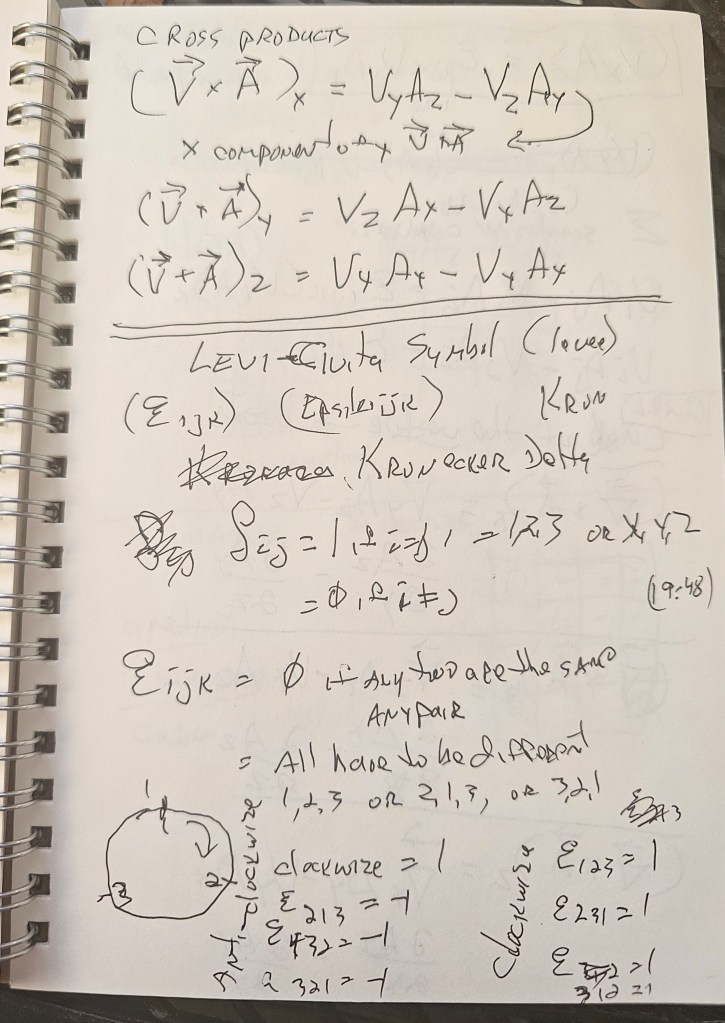 CROSS PRODUCTS
(V⃗ × A⃗)x = VyAz − VzAy
x component of V⃗ × A⃗
(V⃗ × A⃗)y = Vz Ax − Vx Az
(V⃗ × A⃗)z = Vx Ay − Vy Ax
LEVI-Civita Symbol (
(εijk) (Epsilonijk) KRON
KRONECKER Delta
δij = 1, if i=j, = 1,2,3 OR X,Y,Z
= 0, if i≠j
(19:48)
εijk = 0 if ANY two are the SAME
ANY pair
= All have to be different
1,2,3 OR 2,1,3, OR 3,2,1
1
2
3
clockwize = 1
Anti-clockwize
ε213 = -1
ε132 = -1
321 = -1
clockwize
ε123 = 1
ε231 = 1
ε312 = 1
312 = 1